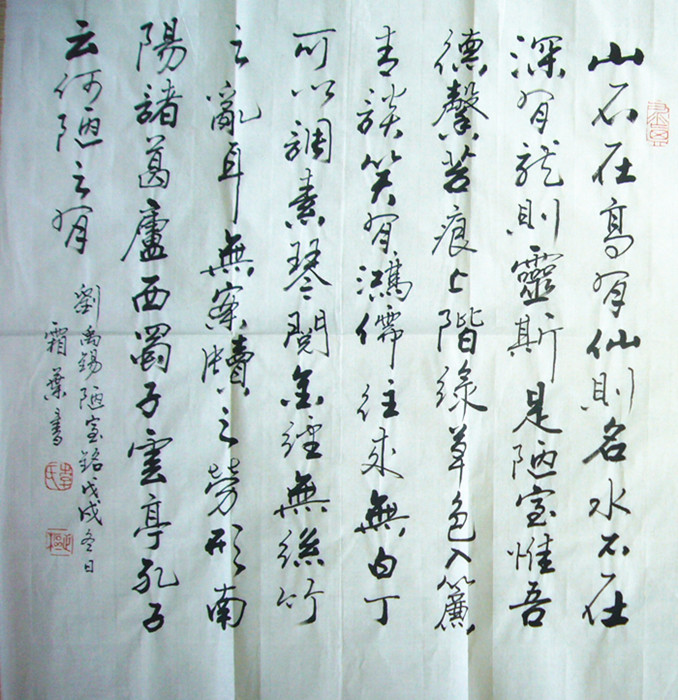 山不在高有仙則名水不在
深有龍則靈斯是陋室惟吾
德馨苔痕上階綠草色入簾
青談笑有鴻儒往來無白丁
可以調素琴閱金經無絲竹
之亂耳無案牘之勞形南
陽諸葛廬西蜀子雲亭孔子
云何陋之有
劉禹錫陋室銘戊戌冬日
霜葉書